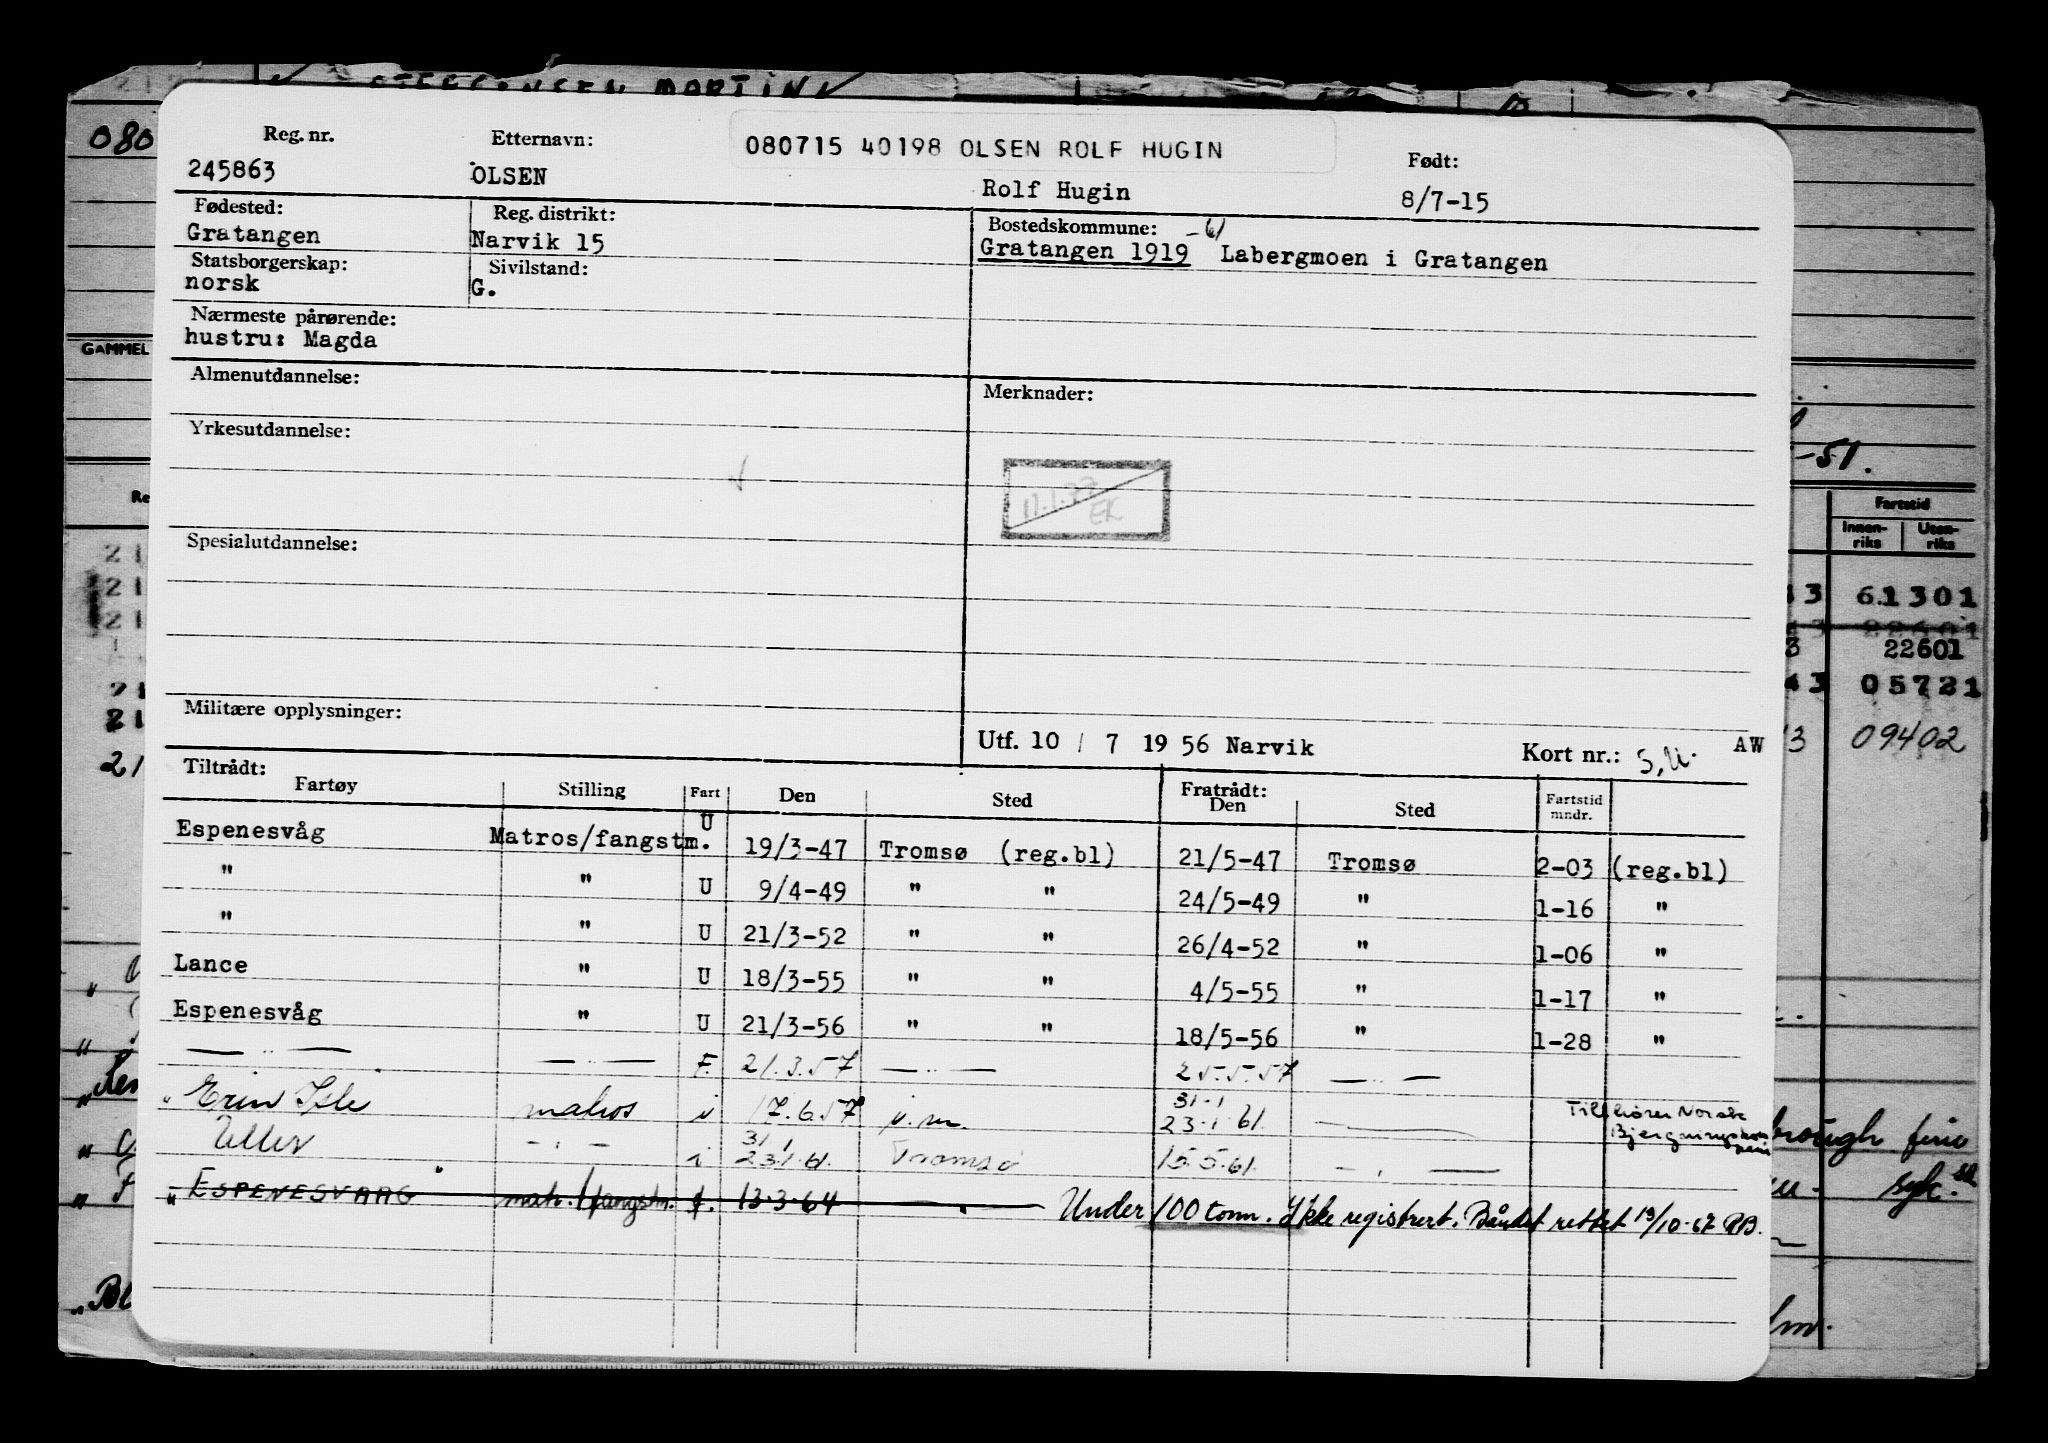 STEFFENSEN MARTIN
080
Reg. nr. Etternavn: 080715 40198 OLSEN ROLF HUGIN Født:
245863 OLSEN Rolf Hugin 8/7-15
Fødested: Reg. distrikt: Bostedskommune:
Gratangen Narvik 15 Gratangen 1919 -61 Labergmoen i Gratangen
Statsborgerskap: Sivilstand:
norsk G.
Nærmeste pårørende:
hustru: Magda
GAMMEL
Almenutdannelse: Merknader:
Yrkesutdannelse:
-51.
11.1.77
EK
Fartstid
Innen-riks Uten-riks
Spesialutdannelse:
61301
22601
22601
05721
09402
Militære opplysninger:
Utf. 10 / 7 1956 Narvik Kort nr.: S.U. AW
Tiltrådt: Fratrådt:
Fartøy Stilling Fart Den Sted Den Sted Fartstid mndr.
Espenesvåg Matros/fangstm. U 19/3-47 Tromsø (reg.bl) 21/5-47 Tromsø 2-03 (reg.bl)
" " U 9/4-49 " " 24/5-49 " 1-16 "
" " U 21/3-52 " " 26/4-52 " 1-06 "
Lance " U 18/3-55 " " 4/5-55 " 1-17 "
Espenesvåg " U 21/3-56 " " 18/5-56 " 1-28 "
— " — — " — F. 21.3.57 — " — 25.5.57 — " —
matros i 17.6.57 31.1 23.1.61. Tilhører Norsk
Uller — " — i 31.1 23.1.61. Tromsø 15.5.61. — " —
" ESPENESVAAG matr./fangstm. f. 13.3.64 — " — Under 100 tonn. Ikke registrert. Båndet rettet 13/10-67 RB.